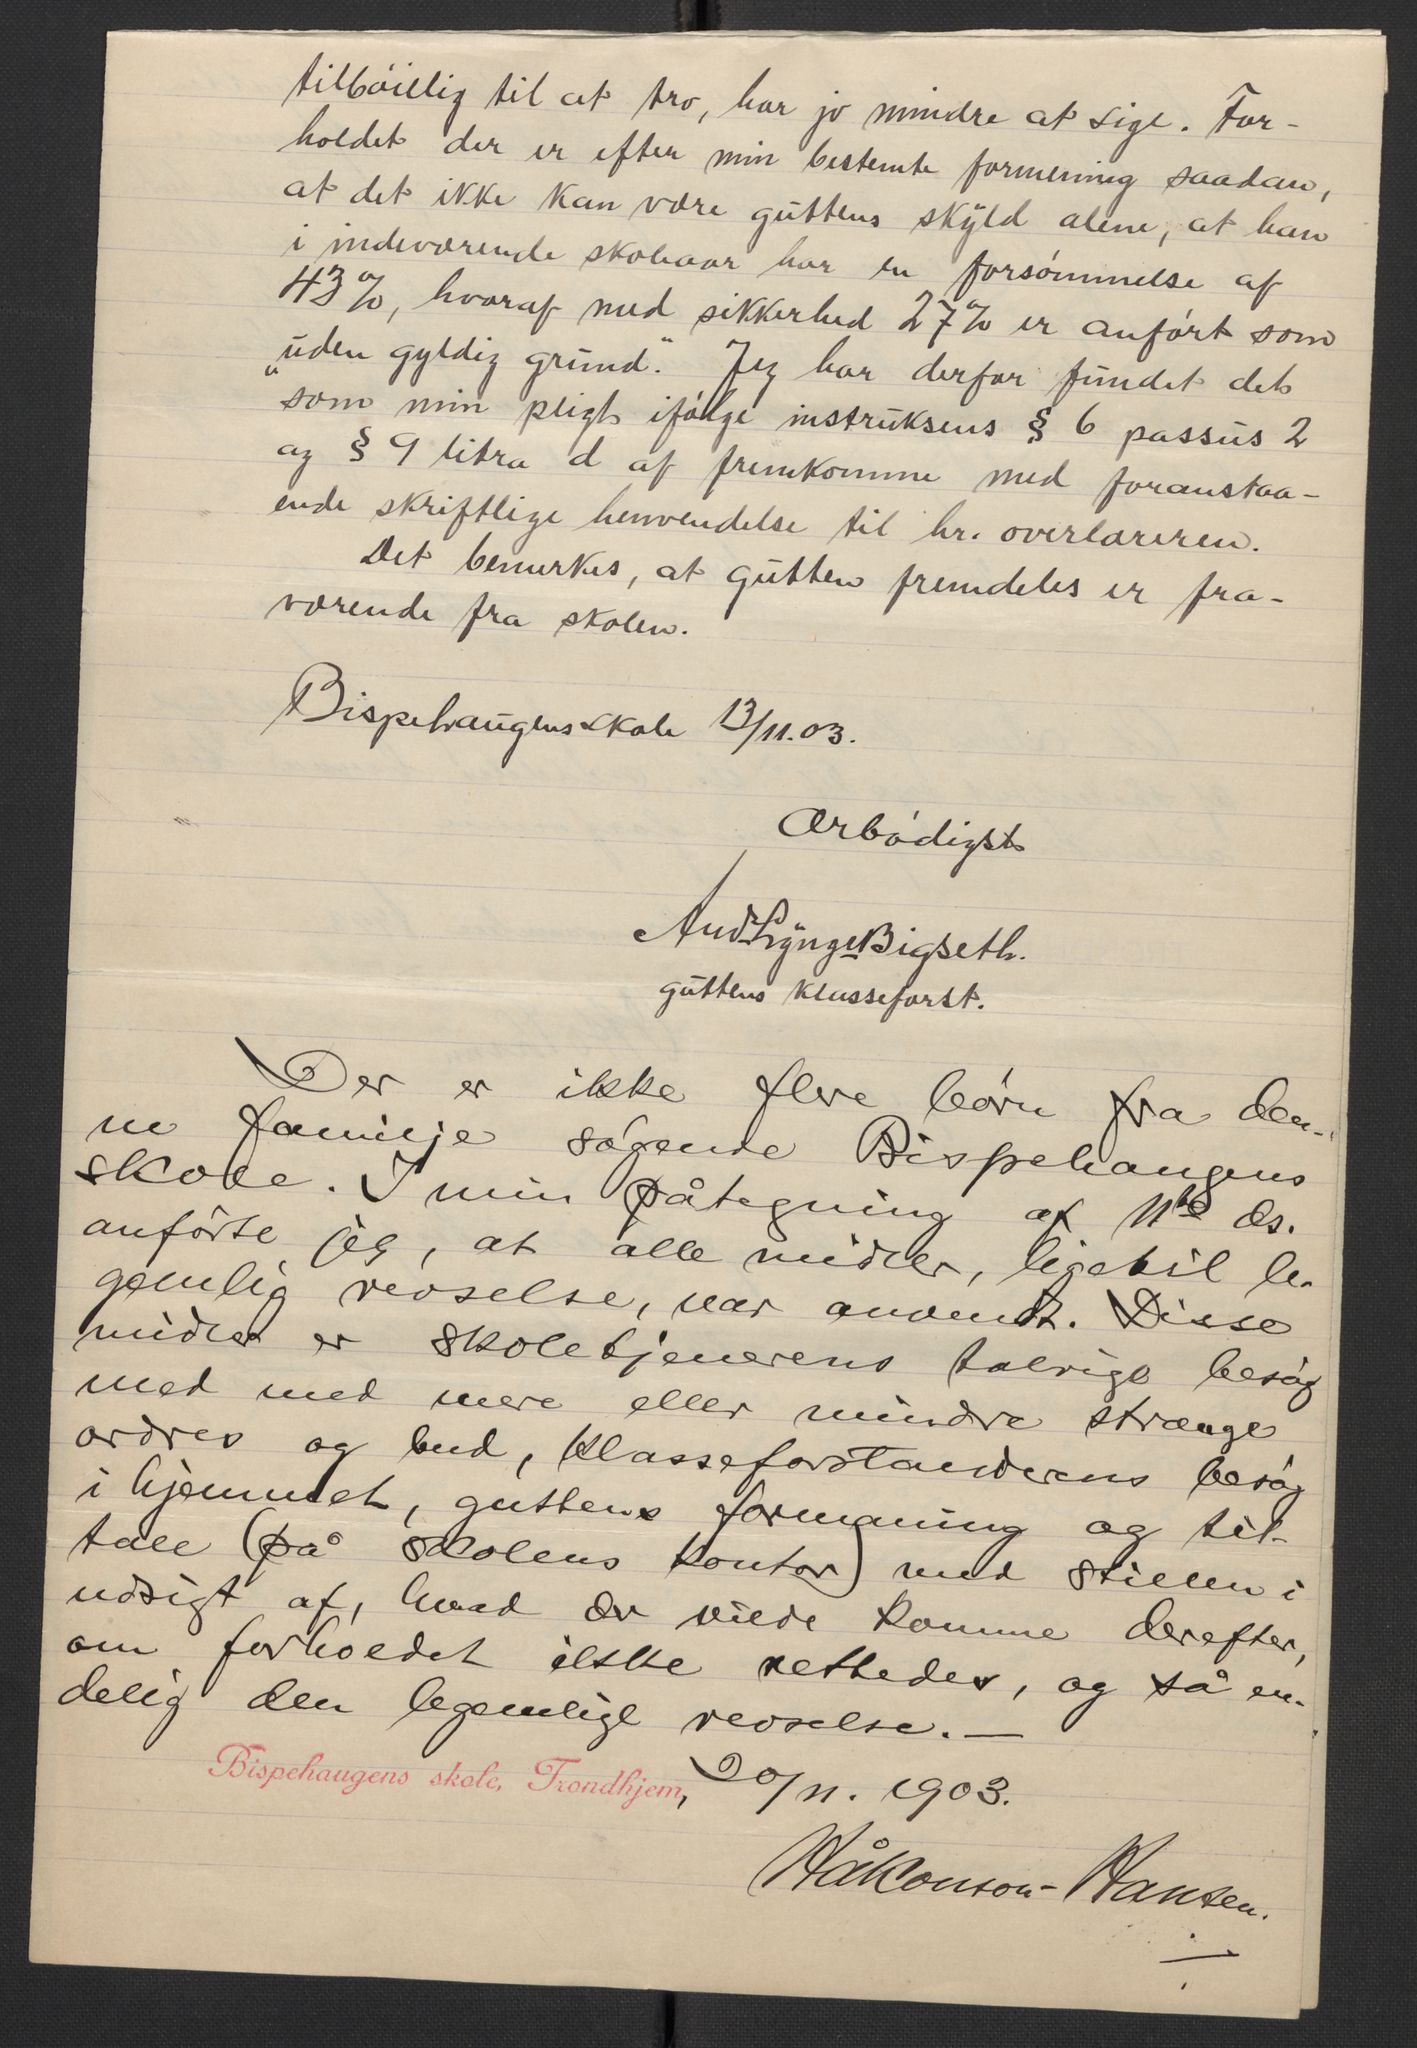 tilböielig til at tro, har jo mindre at sige. For-
holdet der er efter min bestemte formening saadan,
at det ikke kan være guttens skyld alene, at han
i indeværende skoleaar har en forsömmelse af
43%, hvoraf med sikkerhed 27% er anfört som
„uden gyldig grund". Jeg har derfor fundet det
som min pligt ifölge instruksens § 6 passus 2
og § 9 litra d at fremkomme med foranstaa-
ende skriftlige henvendelse til hr. overlæreren.
Det bemerkes, at gutten fremdeles er fra-
værende fra skolen.
Bispehaugens skole 13/11.03.
Ærbödigst
Andr Lynge Bigseth.
guttens klasseforst.
Der er ikke flere börn fra den-
ne familje sögende Bispehaugens
skole. I min påtegning af 11te ds.
anförte jeg, at alle midler, ligetil le-
gemlig revselse, var anvendt. Disse
midler er skoletjenerens talrige besög
med med mere eller mindre strænge
ordres og bud, klasseforstanderens besög
i hjemmet, guttens formaning og til-
tale (på skolens kontor) med stillen i
udsigt af, hvad der vilde komme derefter,
om forholdet ikke rettedes, og så en-
delig den legemlige revselse. —
Bispehaugens skole, Trondhjem, 20/11. 1903.
Håkonson-Hansen.